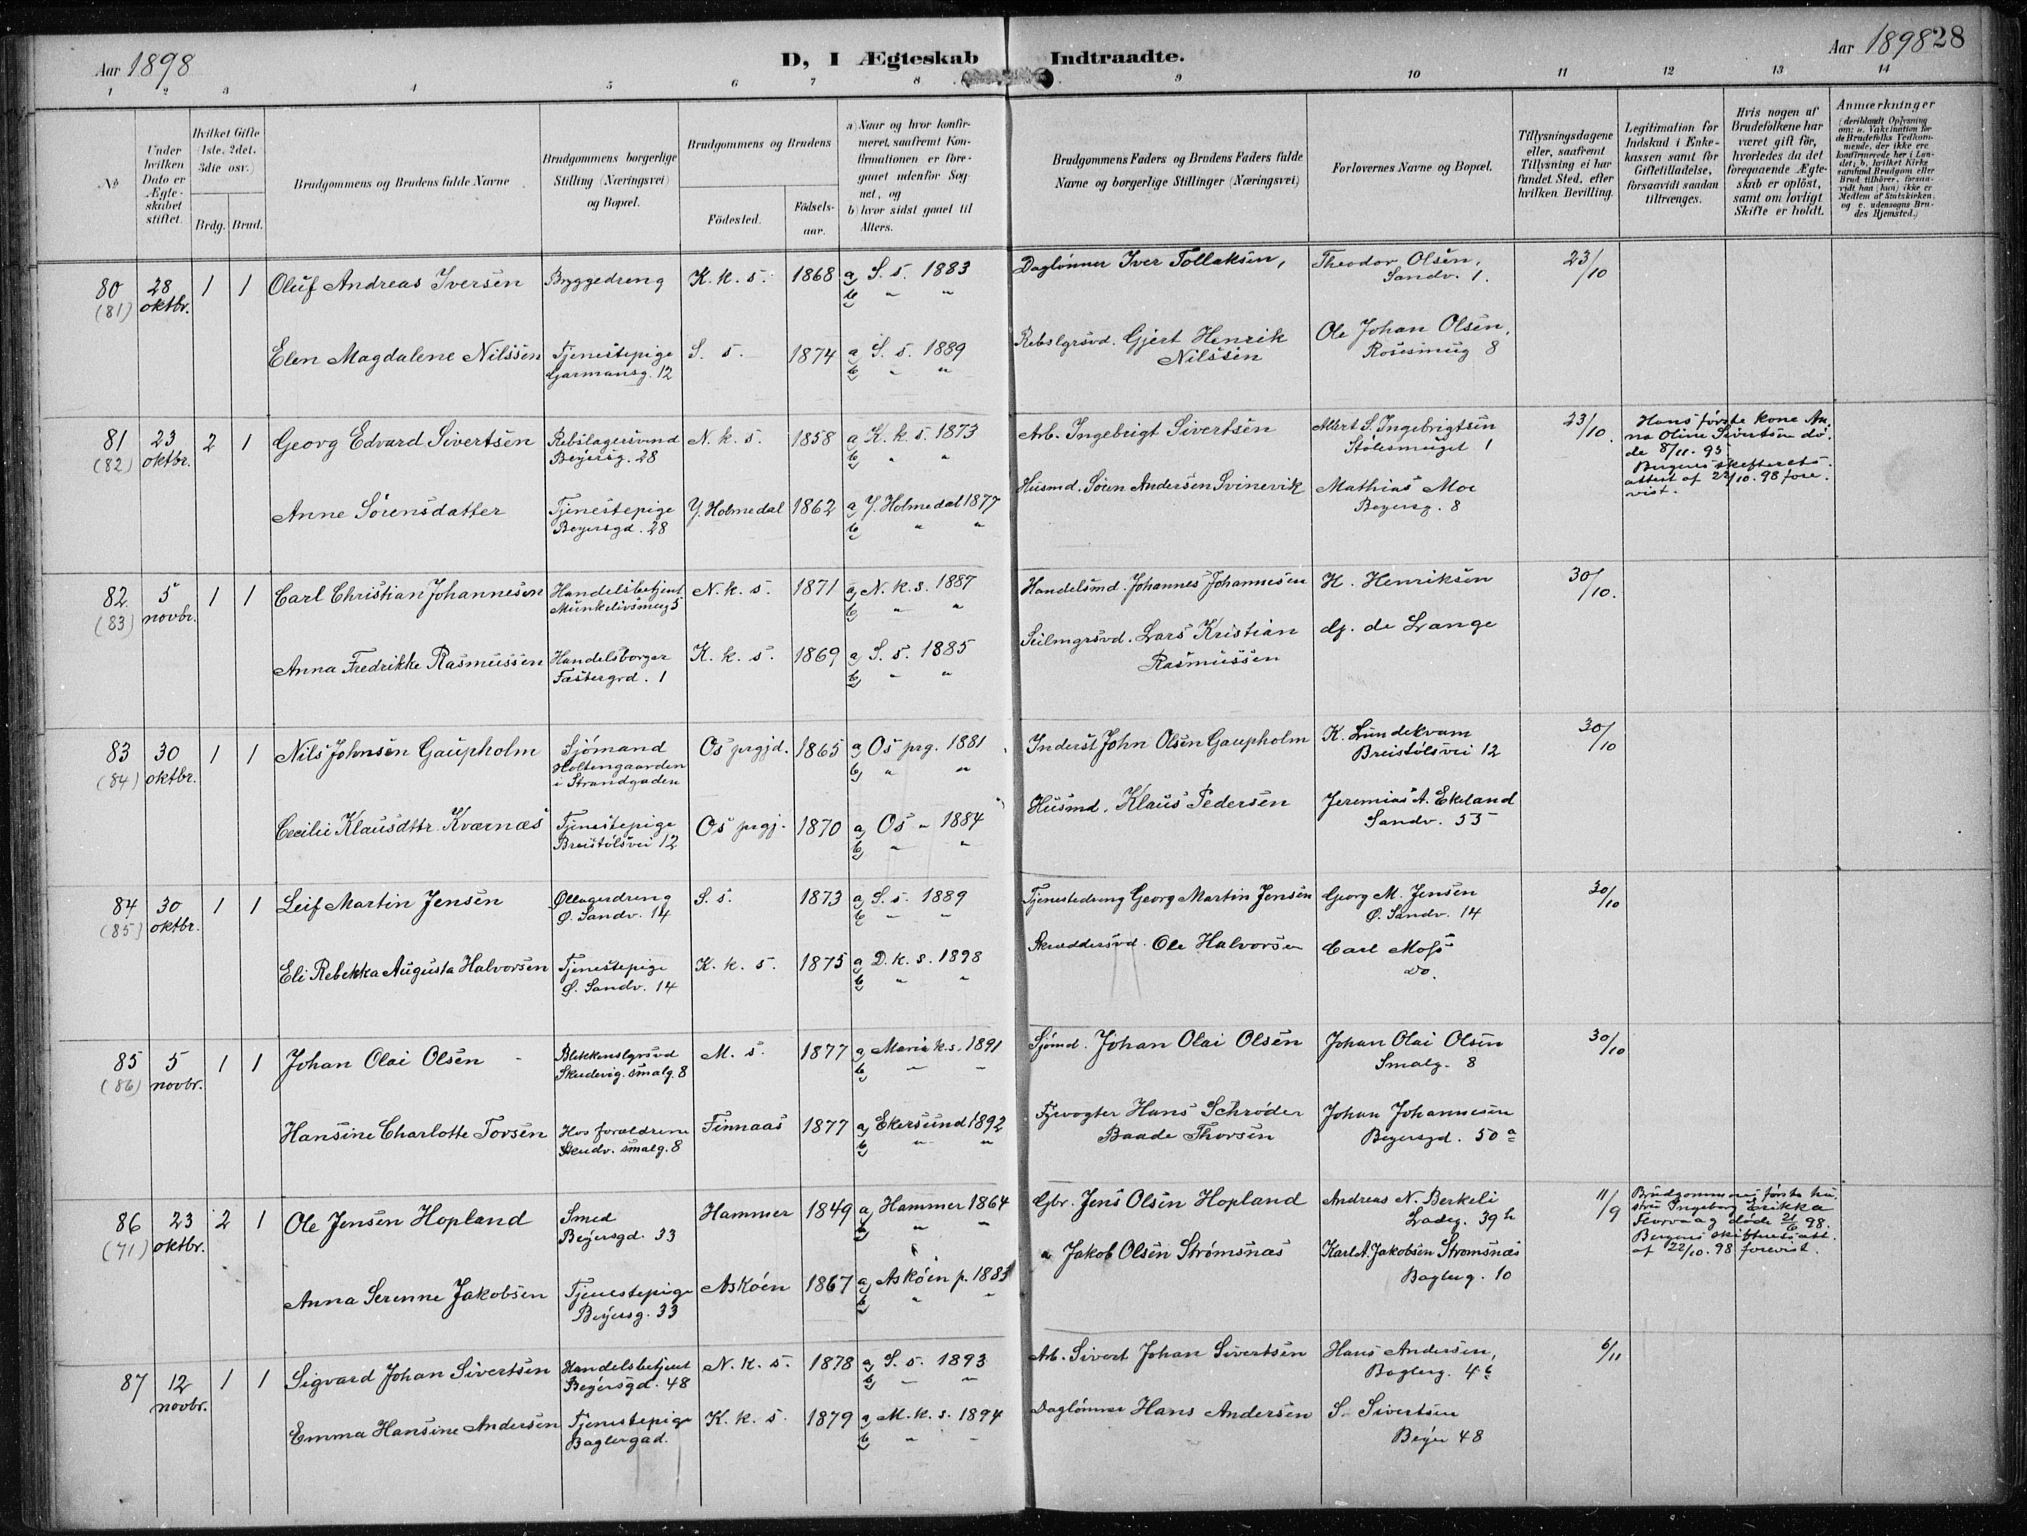 Aar 1898
D, I Ægteskab Indtraadte.
Aar 1898 28
1 2 3 4 5 6 7 8 9 10 11 12 13 14
No
Under hvilken Dato er Ægteskabet stiftet.
Hvilket Gifte (1ste, 2det, 3die osv.)
Brdg. Brud.
Brudgommens og Brudens fulde Navne
Brudgommens borgerlige Stilling (Næringsvei) og Bopæl.
Brudgommens og Brudens
Fødested.
Fødselsaar.
a) Naar og hvor konfirmeret, saafremt Konfirmationen er foregaaet udenfor Sognet, og
b) hvor sidst gaaet til Alters.
Brudgommens Faders og Brudens Faders fulde Navne og borgerlige Stillinger (Næringsvei)
Forlovernes Navne og Bopæl.
Tillysningsdagene eller, saafremt Tillysning ei har fundet Sted, efter hvilken Bevilling.
Legitimation for Indskud i Enkekassen samt for Giftetilladelse, forsaavidt saadan tiltrænges.
Hvis nogen af Brudefolkene har været gift før, hvorledes da det foregaaende Ægteskab er opløst, samt om lovligt Skifte er holdt.
Anmærkninger
80 (81) 28 oktbr. 1 1 Oluf Andreas Iversen Byggedreng K. k. s. 1868 a) S. s. 1883 b) " " Daglønner Iver Tollaksen, Theodor Olsen, Sandv. 1. 23/10
Elen Magdalene Nilssen Tjenestepige Garmansg. 12 S. s. 1874 a) S. s. 1889 b) " " Rebslgrsvd. Gjert Henrik Nilssen Ole Johan Olsen, Rosesmug 8
81 (82) 23 oktbr. 2 1 Georg Edvard Sivertsen Rebslagersvend Beyersg. 28 N. k. s. 1858 a) K. k. s. 1873 b) " " Arb. Ingebrigt Sivertsen Albert S. Ingebrigtsen Stølesmuget 1 23/10. Hans første kone Anna Oline Sivertsen døde 8/11. 95 Bergens skifterets attest af 22/10. 98 forevist.
Anne Sørensdatter Tjenestepige Beyersgd. 28 Y. Holmedal 1862 a) Y. Holmedal 1877 b) " " Husmd. Søren Andersen Svinevik Mathias Moe Beyersg. 8
82 (83) 5 novbr. 1 1 Carl Christian Johannesen Handelsbetjent Munkelivsmug 5 N. k. s. 1871 a) N. k. s. 1887 b) " " Handelsmd. Johannes Johannesen K. Henriksen 30/10.
Anna Fredrikke Rasmussen Handelsborger Fæstergrd. 1 K. k. s. 1869 a) S. s. 1885 b) " " Seilmgrsvd. Lars Kristian Rasmussen de Lange
83 (84) 30 oktbr. 1 1 Nils Johnsen Gaupholm Sjömand Holtengaarden i Strandgaden Os prgjd. 1865 a) Os prg. 1881 b) " " Inderst John Olsen Gaupholm K. Lundekvam Breistølsvei 12 30/10
Cecilie Klausdttr. Kværnæs Tjenestepige Breistølsvei 12 Os prgj. 1870 a) Os " 1884 b) " " Husmd. Klaus Pedersen Jeremias A. Ekeland Sandv. 55
84 (85) 30 oktbr. 1 1 Leif Martin Jensen Øllagerdreng Ø. Sandv. 14 S. s. 1873 a) S. s. 1889 b) " " Tjenestedreng Georg Martin Jensen Georg M. Jensen Ø. Sandv. 14 30/10
Eli Rebekka Augusta Halvorsen Tjenestepige Ø. Sandv. 14 K. k. s. 1875 a) D. k. s. 1898 b) " " Skræddersvd. Ole Halvorsen Carl Moss do.
85 (86) 5 novbr. 1 1 Johan Olai Olsen Blikkenslgrsvd Skudevig. smalg. 8 M. s. 1877 a) Marie k. s. 1891 b) " " Sjømd. Johan Olai Olsen Johan Olai Olsen Smalg. 8 30/10
Hansine Charlotte Torsen Hos forældrene Skudv. smalg. 8 Finnaas 1877 a) Ekersund 1892 b) " " Fyrvogter Hans Schrøder Baade Thorsen Johan Johannesen Beyersgd. 50 a
86 (71) 23 oktbr. 2 1 Ole Jensen Hopland Smed Beyersgd. 33 Hammer 1849 a) Hammer 1864 b) " " Gbr. Jens Olsen Hopland Andreas N. Berkeli Ladeg. 39 h 11/9 Brudgommens første hustru Ingeborg Erikka Florvaag døde 21/6 98. Bergens skifterets att. af 22/10. 98 forevist.
Anna Serenne Jakobsen Tjenestepige Beyersg. 33 Askøen 1867 a) Askøen p. 1883 b) " " " Jakob Olsen Strømsnæs Karl A. Jakobsen Strømsnæs Baglerg. 10
87 12 novbr. 1 1 Sigvard Johan Sivertsen Handelsbetjent Beyersgd. 48 N. k. s. 1878 a) S. s. 1893 b) " " Arb. Sivert Johan Sivertsen Hans Andersen, Baglerg. 4 b 6/11
Emma Hansine Andersen Tjenestepige Baglergad. K. k. s. 1879 a) M. k. s. 1894 b) " " Daglønner Hans Andersen S. Sivertsen Beyer 48